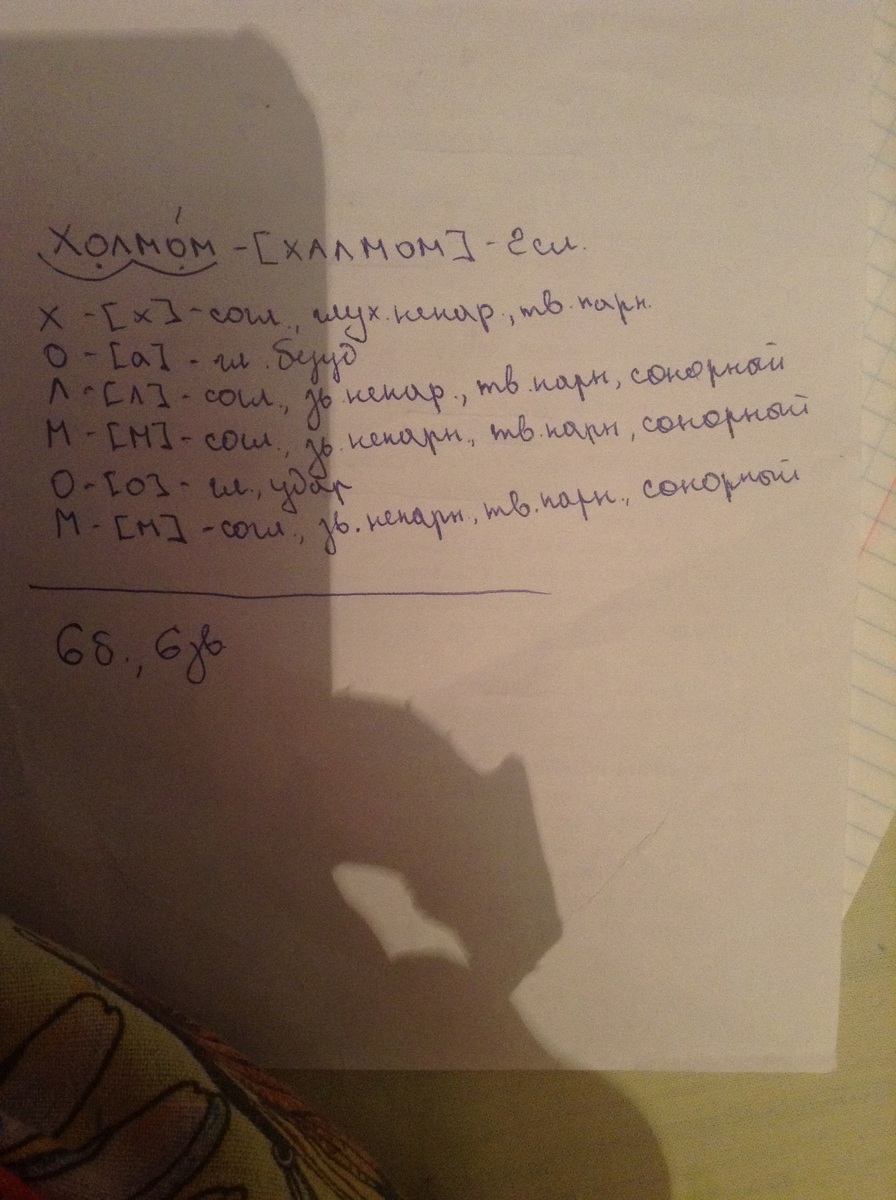 Холмо́м - [халмом] - 2 сл.
Х - [х] - согл., глух. непар., тв. парн.
О - [а] - гл. безуд
Л - [л] - согл., зв. непар., тв. парн, сонорный
М - [м] - согл., зв. непарн., тв. парн, сонорный
О - [о] - гл., удар
М - [м] - согл., зв. непарн., тв. парн., сонорный
6б., 6зв